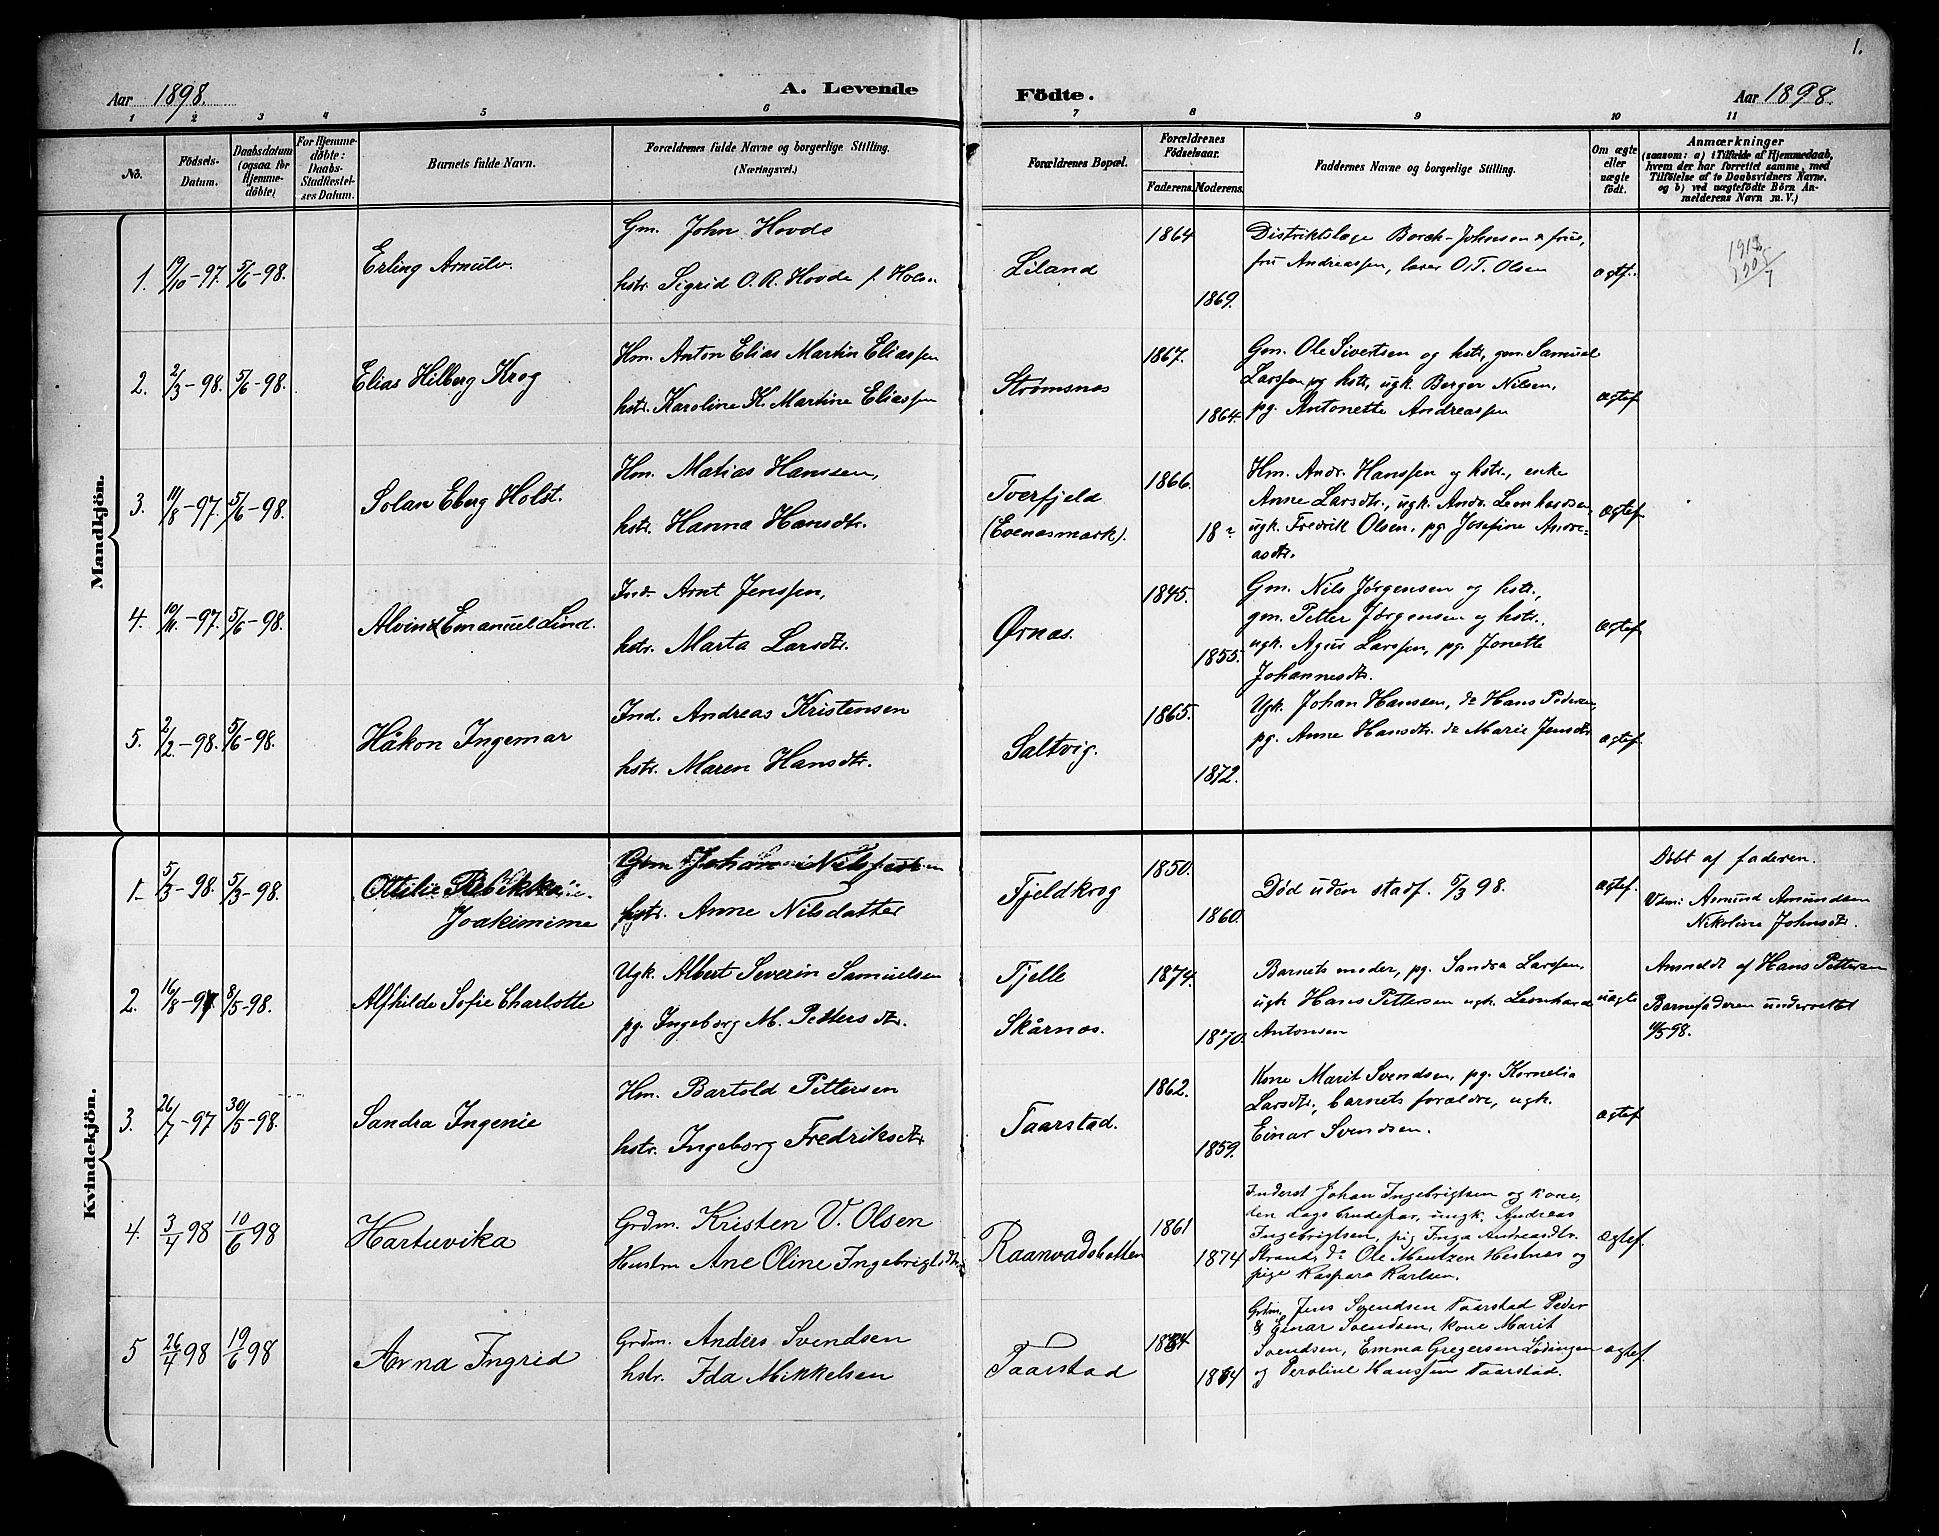 1.
Aar 1898.
A. Levende
Födte.
Aar 1898.
1 2 3 4 5 6 7 8 9 10 11
No.
Födsels-
Datum.
Daabsdatum
(ogsaa for
Hjemme-
döbte)
For Hjemme-
döbte:
Daabs-
Stadfæstel-
ses Datum.
Barnets fulde Navn.
Forældrenes fulde Navne og borgerlige Stilling.
(Næringsvei.)
Forældrenes Bopæl.
Forældrenes
Födselsaar.
Faderens. Moderens.
Faddernes Navne og borgerlige Stilling.
Om ægte
eller
uægte
födt.
Anmærkninger
(saasom: a) i Tilfælde af Hjemmedaab,
hvem der har forrettet samme, med
Tilföielse af to Daabsvidners Navne,
og b) ved uægtefödte Börn An-
melderens Navn m. V.)
Mandkjön.
1. 19/10-97. 5/6-98.
Erling Arnulv.
Gm. John Hovde
hstr. Sigrid O. R. Hovde f. Hols
Liland
1864
1869.
Distriktslæge Borch-Johnsen & frue,
fru Andreassen, lærer O. T. Olsen
ægtef.
1918
2. 2/3-98. 5/6-98.
Elias Hilberg Krog
Hm. Anton Elias Martin Eliassen
hstr. Karoline K. Martine Eliassen
Strømsnes
1867.
1864.
Gm. Ole Sivertsen og hstr, gm. Samuel
Larssen og hstr, ugk. Berger Nilsen,
pg. Antonette Andreassen
ægtef
3. 19/8-97. 5/6-98.
Solan Eberg Holst.
Hm. Matias Hanssen,
hstr. Hanna Hansdtr.
Tverfjeld
(Evenesmark).
1866.
18
Hm. Andr. Hanssen og hstr., enke
Anne Larsdtr., ugk. Andr. Leonhardsen,
ugk. Fredrik Olsen, pg Josefine Andre-
asdtr.
ægtef
4. 10/11-97. 5/6-98.
Alvin Emanuel Lind.
Ind. Arnt Jenssen,
hstr. Marta Larsdtr.
Ørnes.
1845.
1855.
Gm. Nils Jørgensen og hstr.,
gm. Petter Jørgensen og hstr.,
ugk. Larssen, pg. Jonette
Johannesdtr.
ægtef
5. 2/2-98. 5/6-98.
Håkon Ingemar
Ind. Andreas Kristensen
hstr. Maren Hansdtr.
Saltvig.
1865.
1872.
Ugk. Johan Hansen, do Hans Pedersen,
pg. Anne Hansdtr. do Marie Jensdtr
ægtef
Kvindekjön.
1. 5/3-98. 5/3-98.
Ottilie Rebikka
Joakimime
Gm Johan
hstr. Anne Nilsdatter
Fjeldkrog
1850.
1860.
Død uden stadf. 5/3 98.
ægtef.
Døbt af faderen.
Vdm: Asmund Amundsen
Nikoline Johnsdtr.
2. 16/8-97 8/5-98.
Alfhilde Sofie Charlotte
Ugk. Albert Severin Samuelsen
pg. Ingeborg M. Pettersdtr.
Fjelle
Skårnes.
1874.
1870.
Barnets moder, pg. Sandra Larssen,
ugk Hans Pettersen ugk. Leonhard
Antonsen
uægte
Anmeldt af Hans Pettersen
Barnefaderen underrettet
5 98.
3. 26/7-97 30/5-98.
Sandra Ingenie
Hm. Bartold Pettersen
hstr. Ingeborg Fredriksdtr
Taarstad.
1862.
1859.
Kone Marit Svendsen, pg. Kornelia
Larsdtr., barnets forældre, ugk.
Einar Svendsen.
ægtef
4. 3/4 98 10/6 98
Hartuvika
Grdm. Kristen V. Olsen
Hustru Ane Oline Ingebrigtsdtr.
Raanvadsbotten
1861
1874
Inderst Johan Ingebrigtsen og kone,
den dags brudepar, ungk. Andreas
Ingebrigtsen, pig Inga Andreasdtr.
Strand, do Ole Mentzen Hestnes og
pige Kaspara Karlsen.
ægtef.
5 26/4 98 19/6 98
Anna Ingrid
Grdm. Anders Svendsen
hstr. Ida Mikkelsen
Taarstad
Grdm. Jens Svendsen Taarstad Peder
& Einar Svendsen, kone Marit
Svendsen, Emma Gregersen Lødingen
og Peroline Hanssen Taarstad.
ægtef.